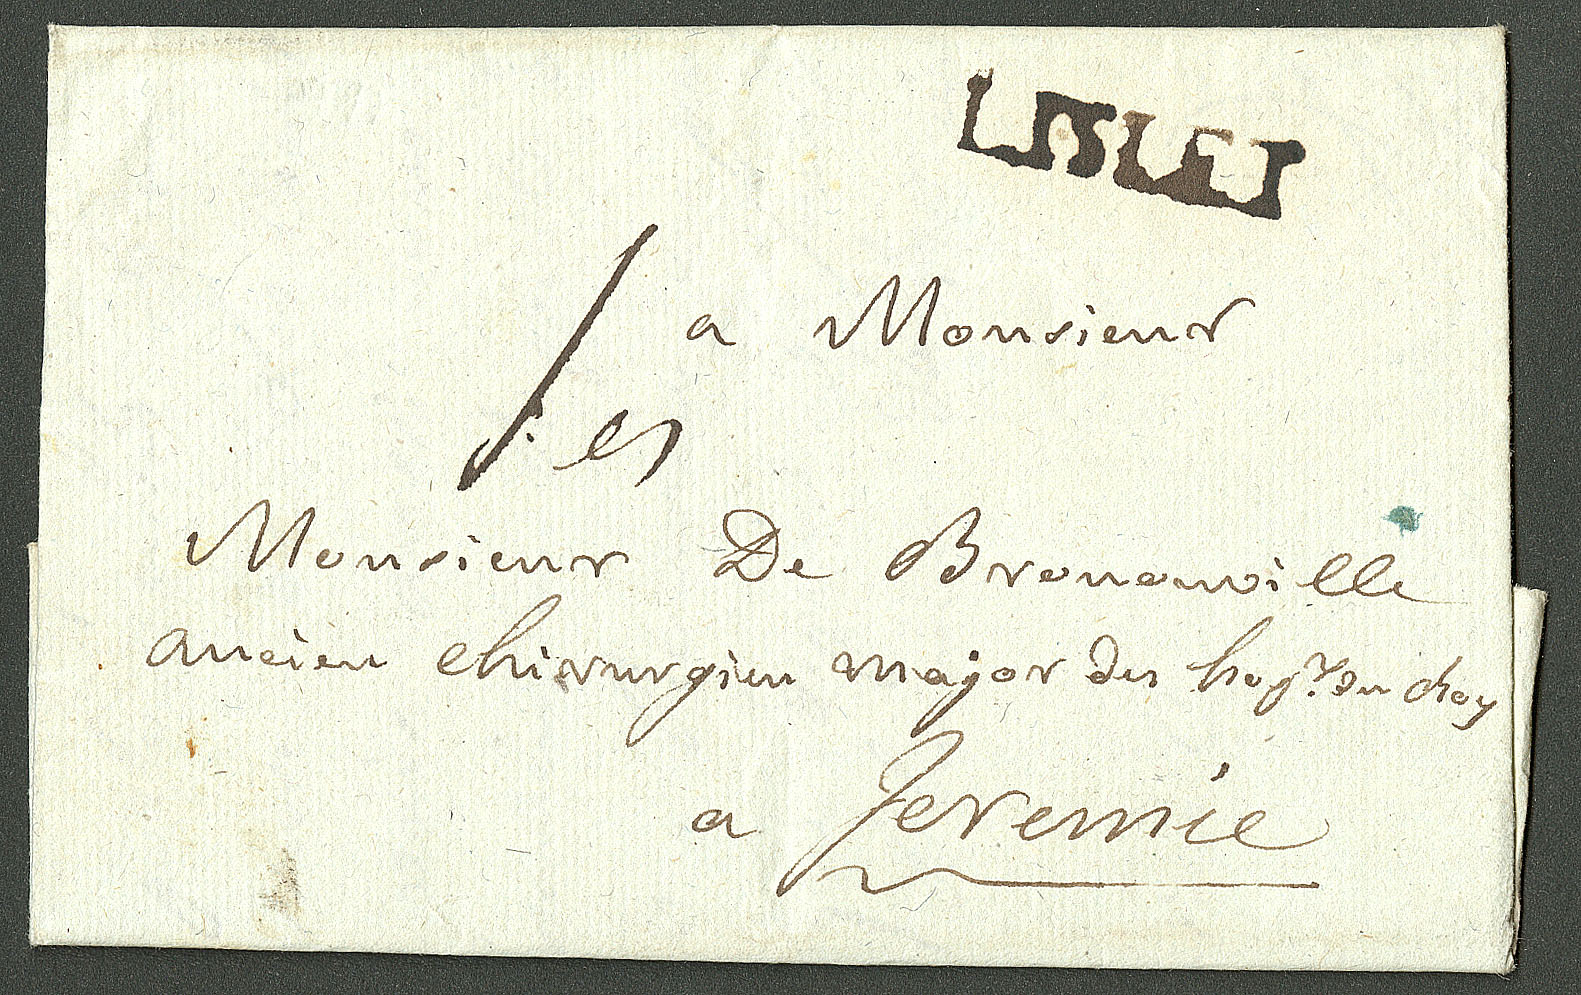 a Monsieur
Monsieur De Bronouville
ancien chirurgien major des hop.x du Roy
a Jeremie